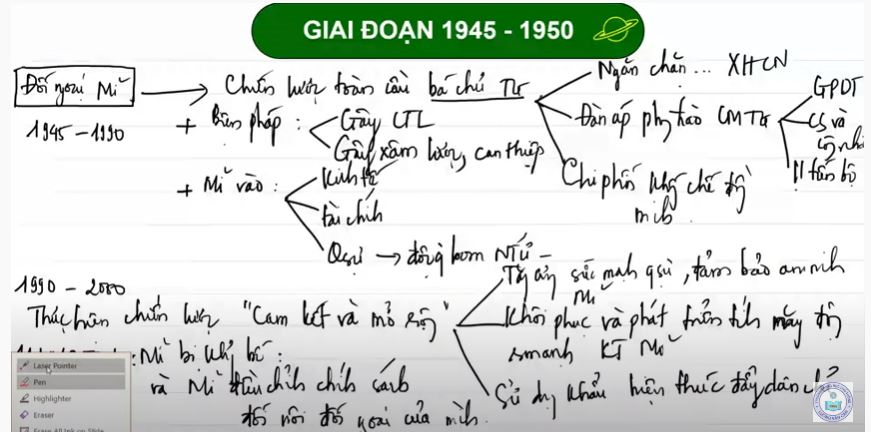 GIAI ĐOẠN 1945 - 1950
Đối ngoại Mĩ → Chiến lược toàn cầu bá chủ TG
Ngăn chặn... XHCN
Đàn áp phong trào CMTG
GPDT
CS và
công nhân
tiến bộ
Chi phối khống chế đồng
minh
1945-1990
+ Biện pháp:
Gây CTL
Gây xâm lược, can thiệp
+ Mĩ vào:
Kinh tế
tài chính
Qsự → dùng bom NTử
1990 - 2000
Thực hiện chiến lược "Cam kết và mở rộng"
Mĩ
Tăng sức mạnh qsự, đảm bảo an ninh
Khôi phục và phát triển tính năng động
smạnh KT Mĩ
Sử dụng khẩu hiệu thúc đẩy dân chủ
: Mĩ bị khủng bố:
và Mĩ điều chỉnh chính sách
đối nội đối ngoại của mình.
Laser Pointer
Pen
Highlighter
Eraser
Erase All Ink on Slide